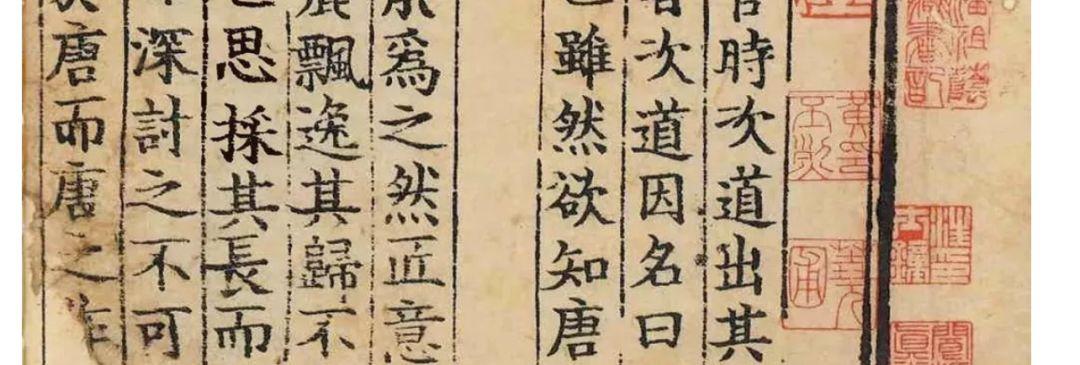 潘祖蔭
藏書記
時次道出其
次道因名曰
雖然欲知唐
爲之然匠意
飄逸其歸不
思採其長而
深討之不可
唐而唐之作